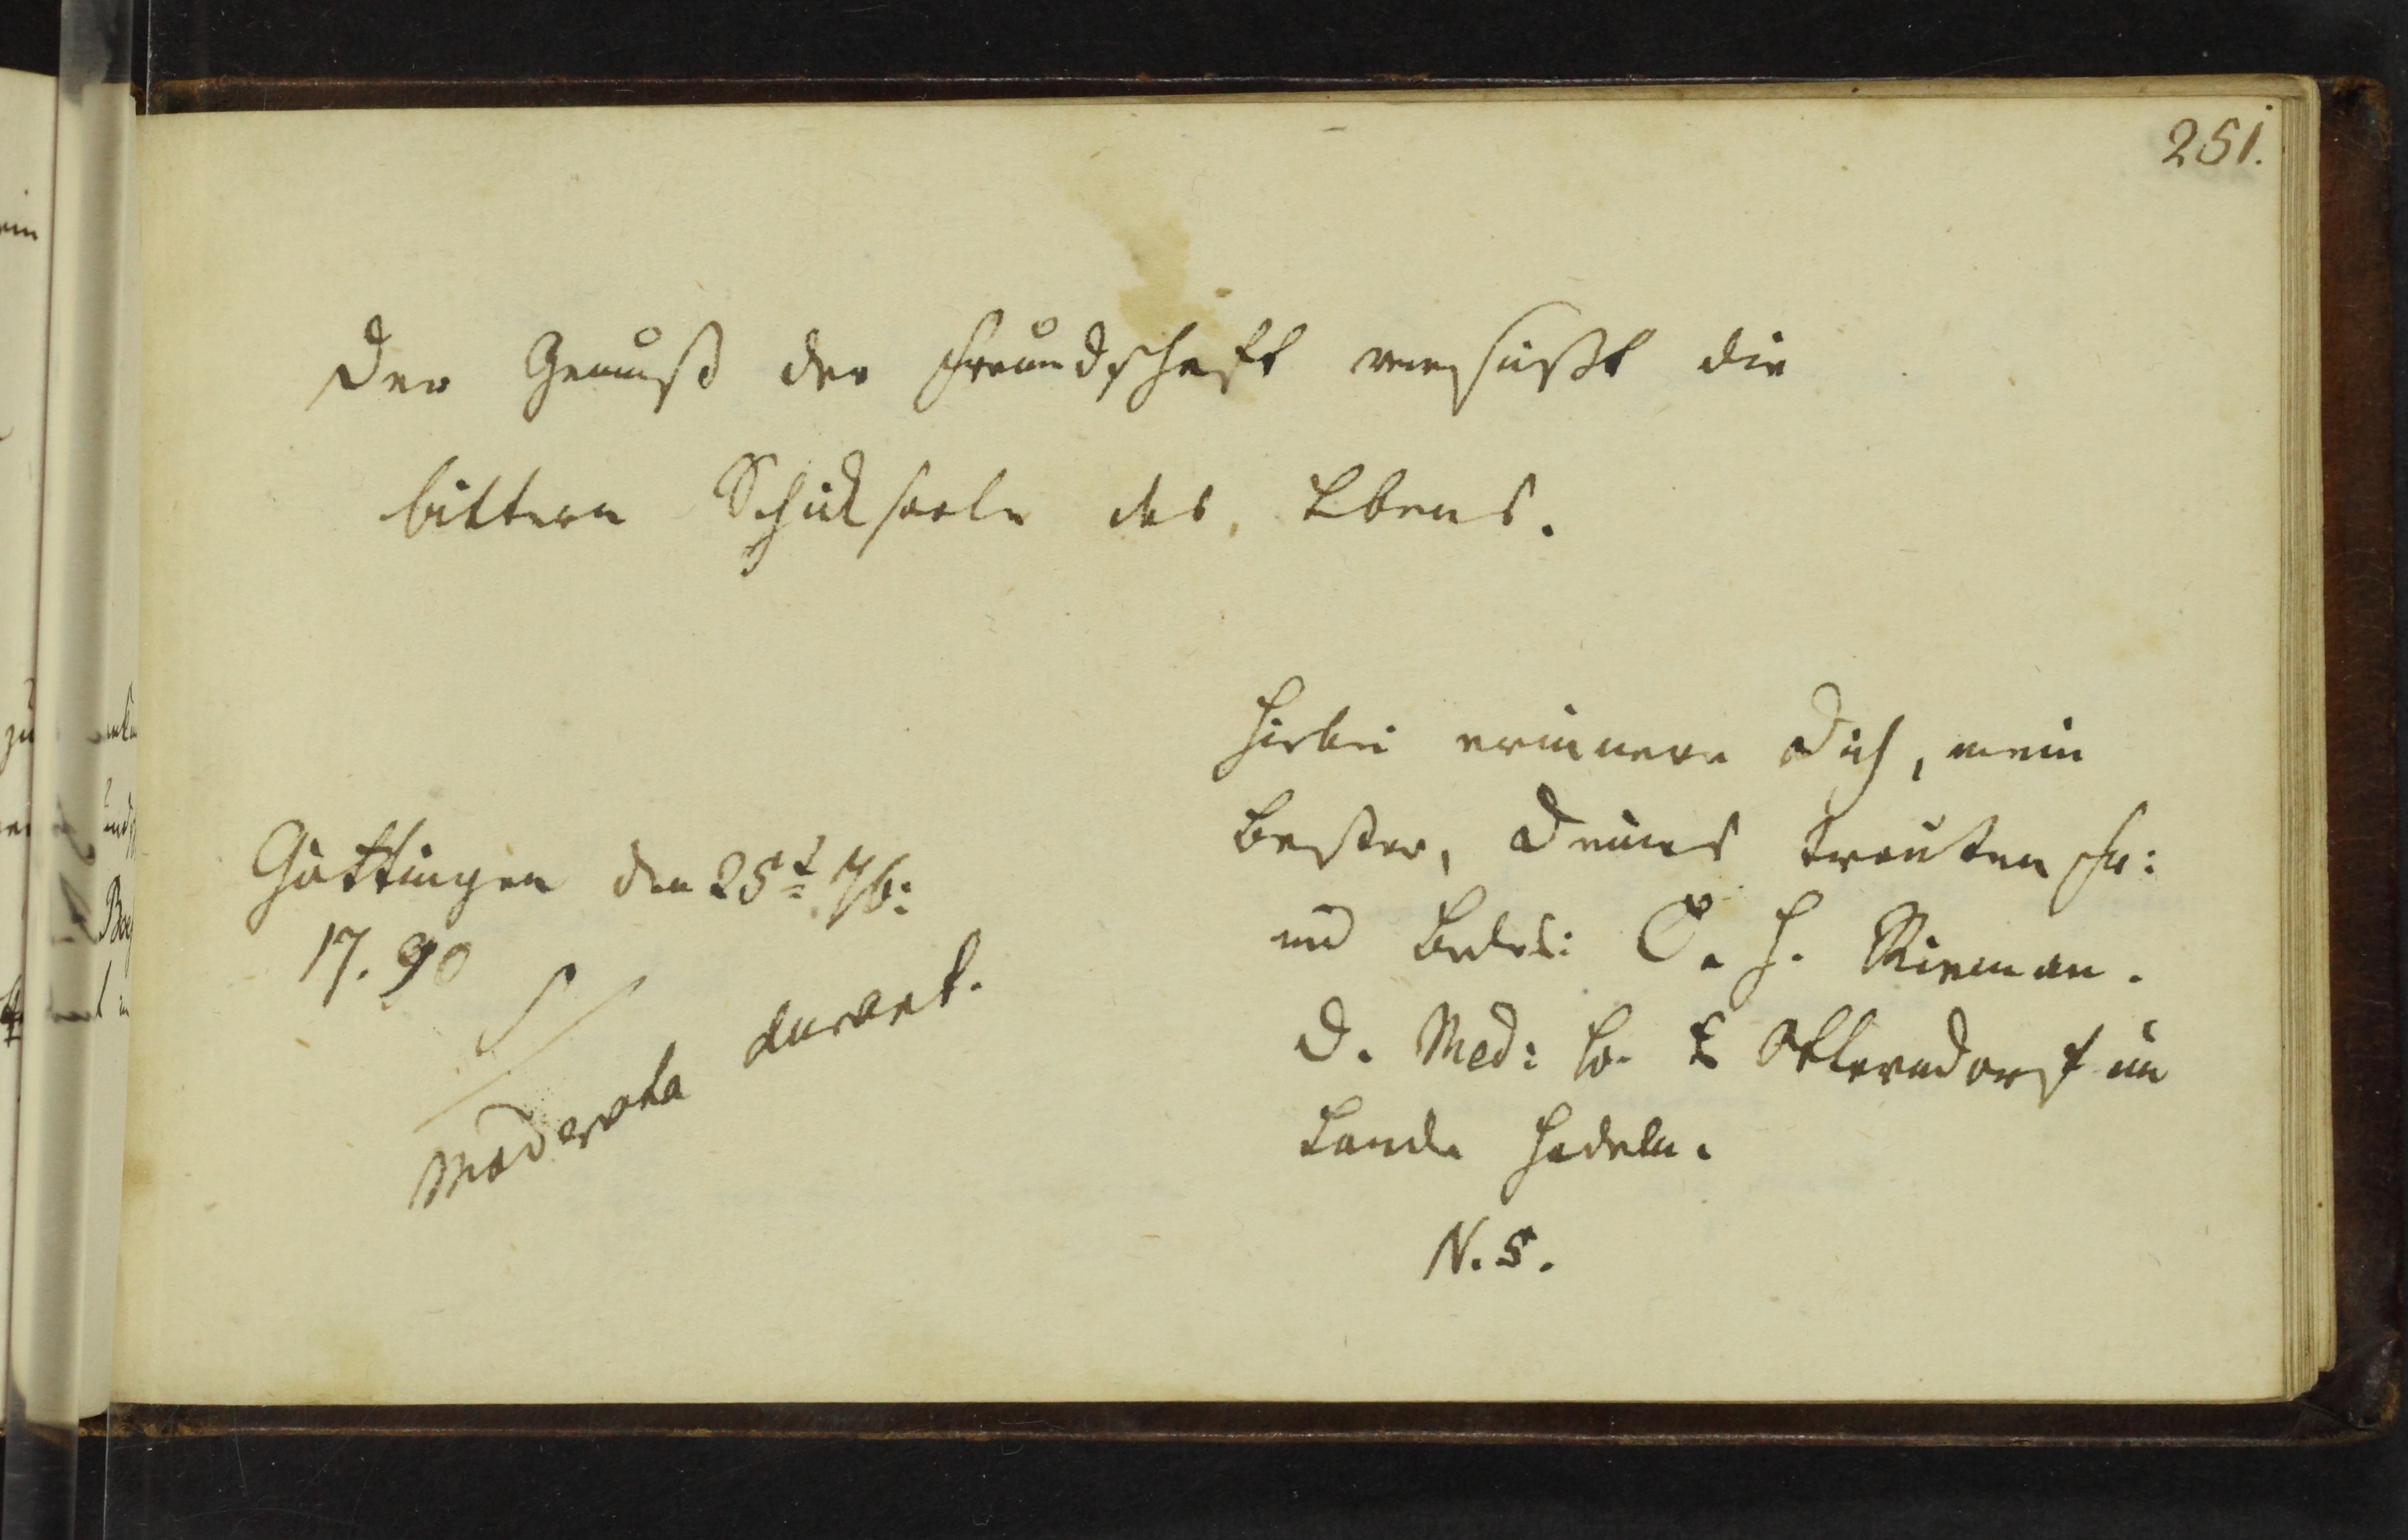 251.
Der Genuß der Freundschaft versüßt die
bittern Schicksaele des Lbens.
Göttingen den 25t 7b:
17.90
Moderata durant.
Hierbei erinnere Dich, mein
Bester, Deines trauten Fr:
und
D. Med: Otterndorf im
Lande Hadeln.
N. S.